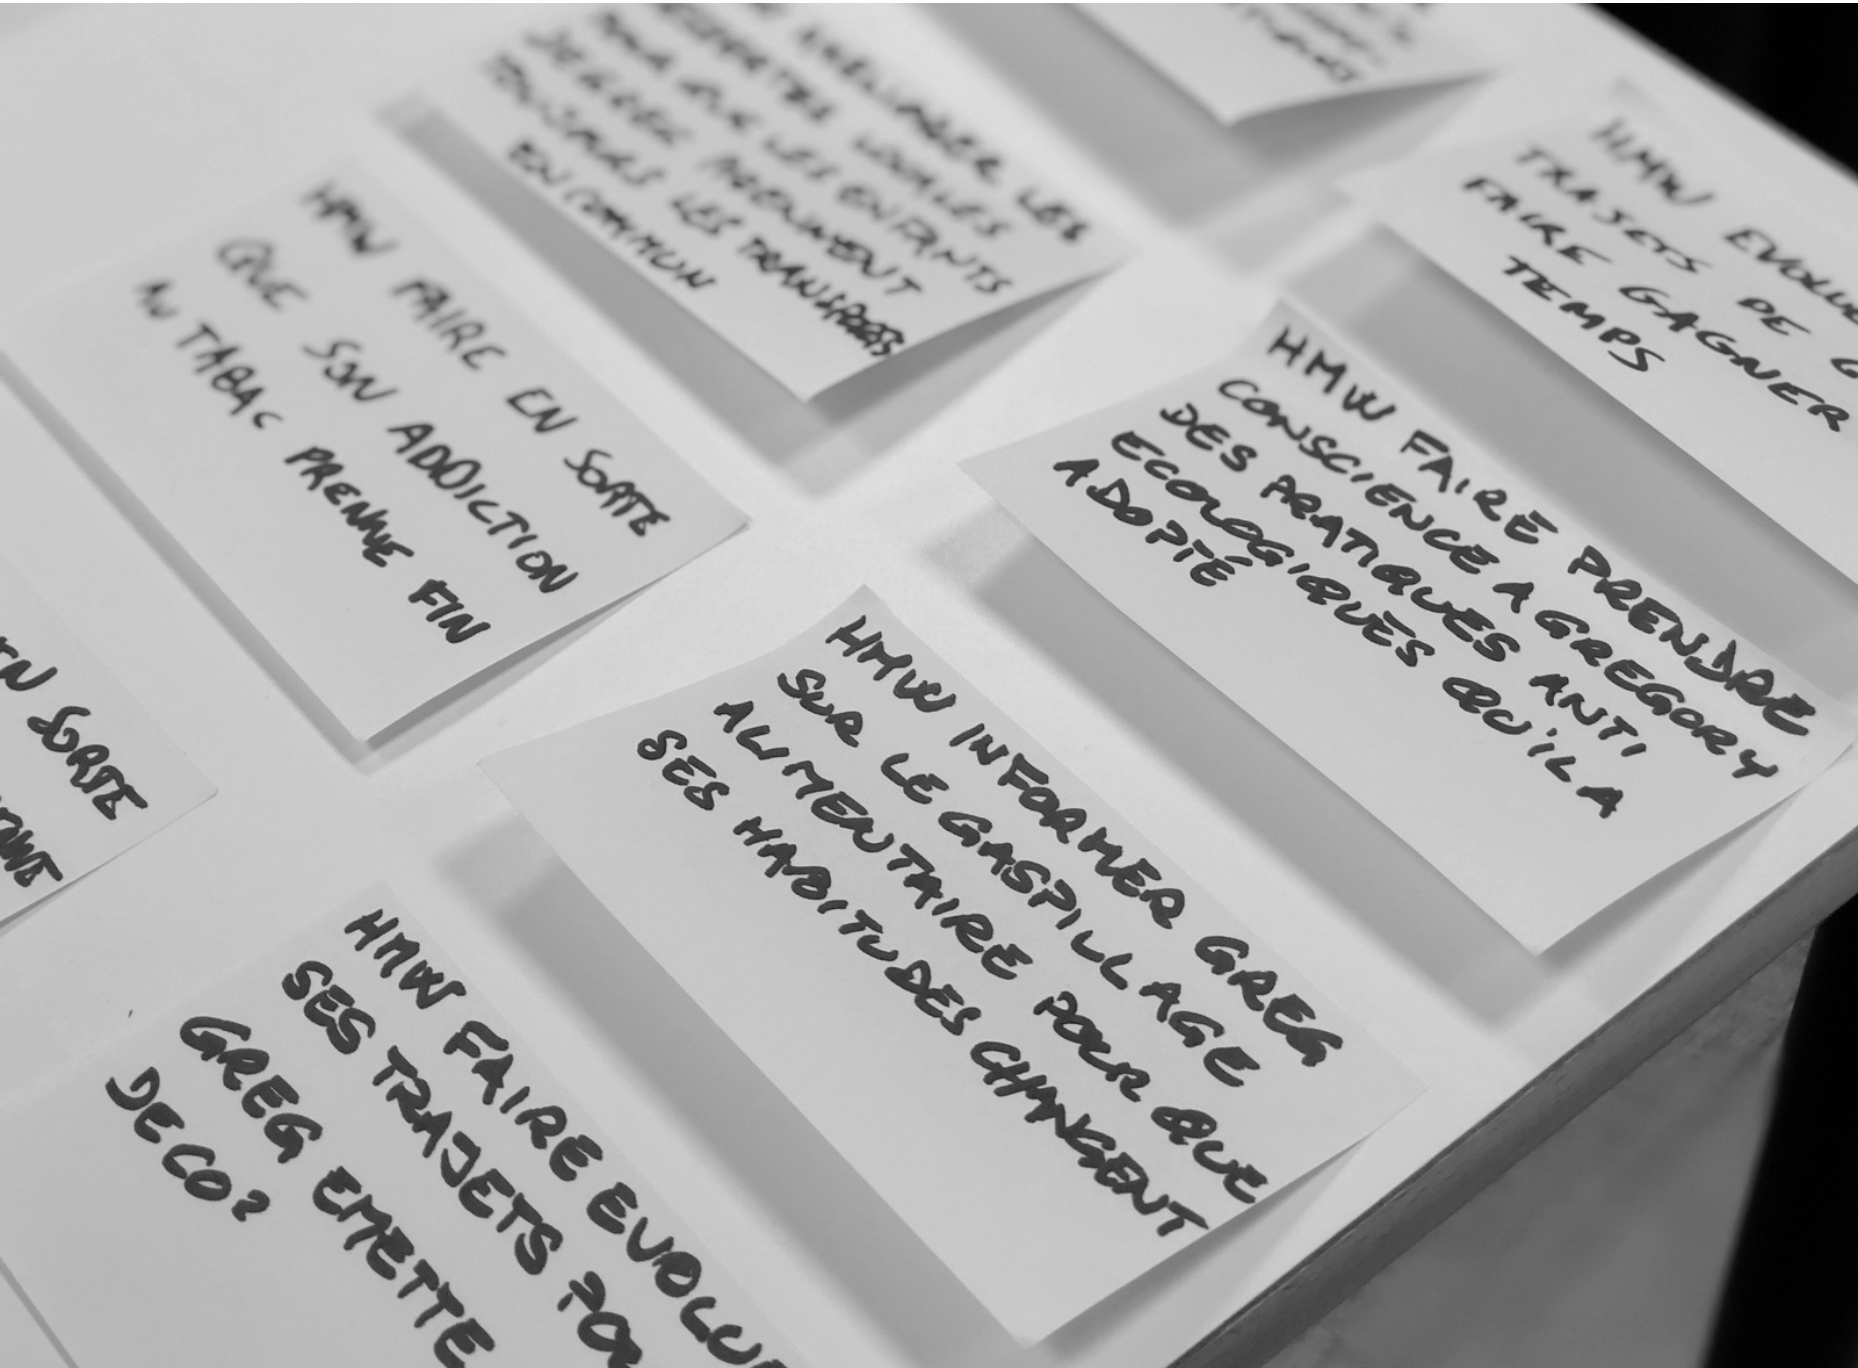 LES
LOCALES
QUE LES ENFANTS
DE GREG PRENNENT
TOUJOURS LES TRANSPORTS
EN COMMUN
HMW
TRAJETS DE
FAIRE GAGNER
TEMPS
HMW FAIRE EN SORTE
QUE SON ADDICTION
AU TABAC PRENNE FIN
HMW FAIRE PRENDRE
CONSCIENCE A GREGORY
DES PRATIQUES ANTI
ECOLOGIQUES QU'IL A
ADOPTÉ
SORTE
HMW INFORMER GREG
SUR LE GASPILLAGE
ALIMENTAIRE POUR QUE
SES HABITUDES CHANGENT
HMW FAIRE EVOLUE
SES TRAJETS POU
GREG EMETTE
DECO2